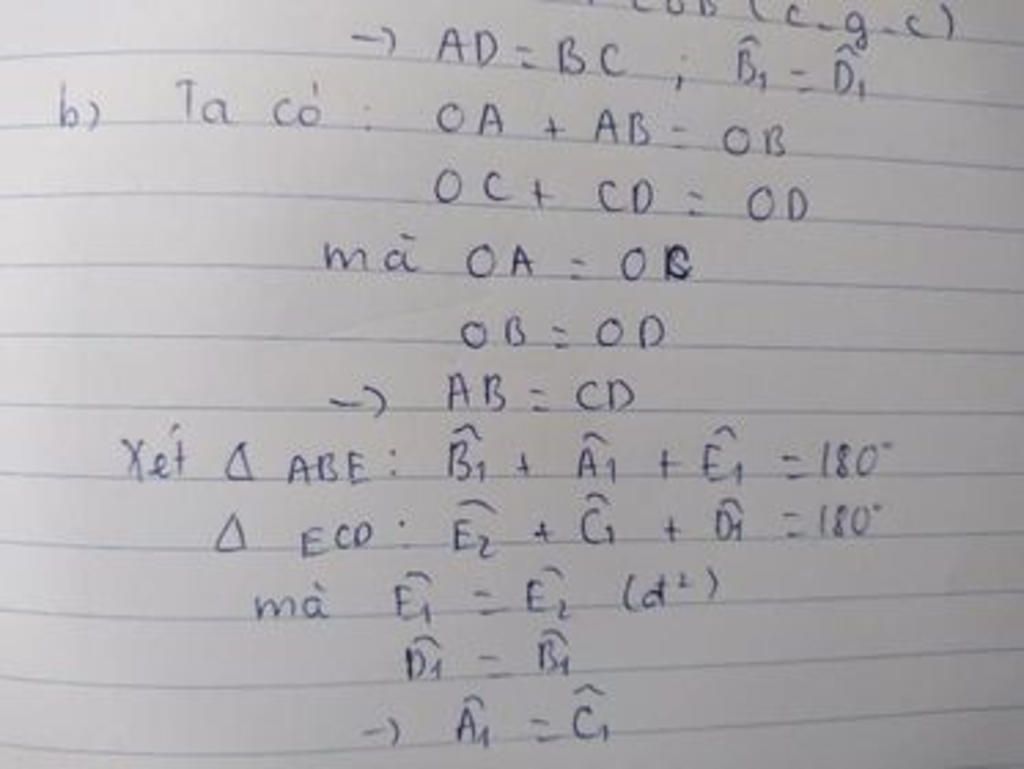 COB (c-g-c)
→ AD = BC ; B̂₁ = D̂₁
b) Ta có : OA + AB = OB
OC + CD = OD
mà OA = OC
OB = OD
→ AB = CD
Xét Δ ABE : B̂₁ + Â₁ + Ê₁ = 180°
Δ ECD : Ê₂ + Ĉ₁ + D̂₁ = 180°
mà Ê₁ = Ê₂ (đ²)
D̂₁ = B̂₁
→ Â₁ = Ĉ₁